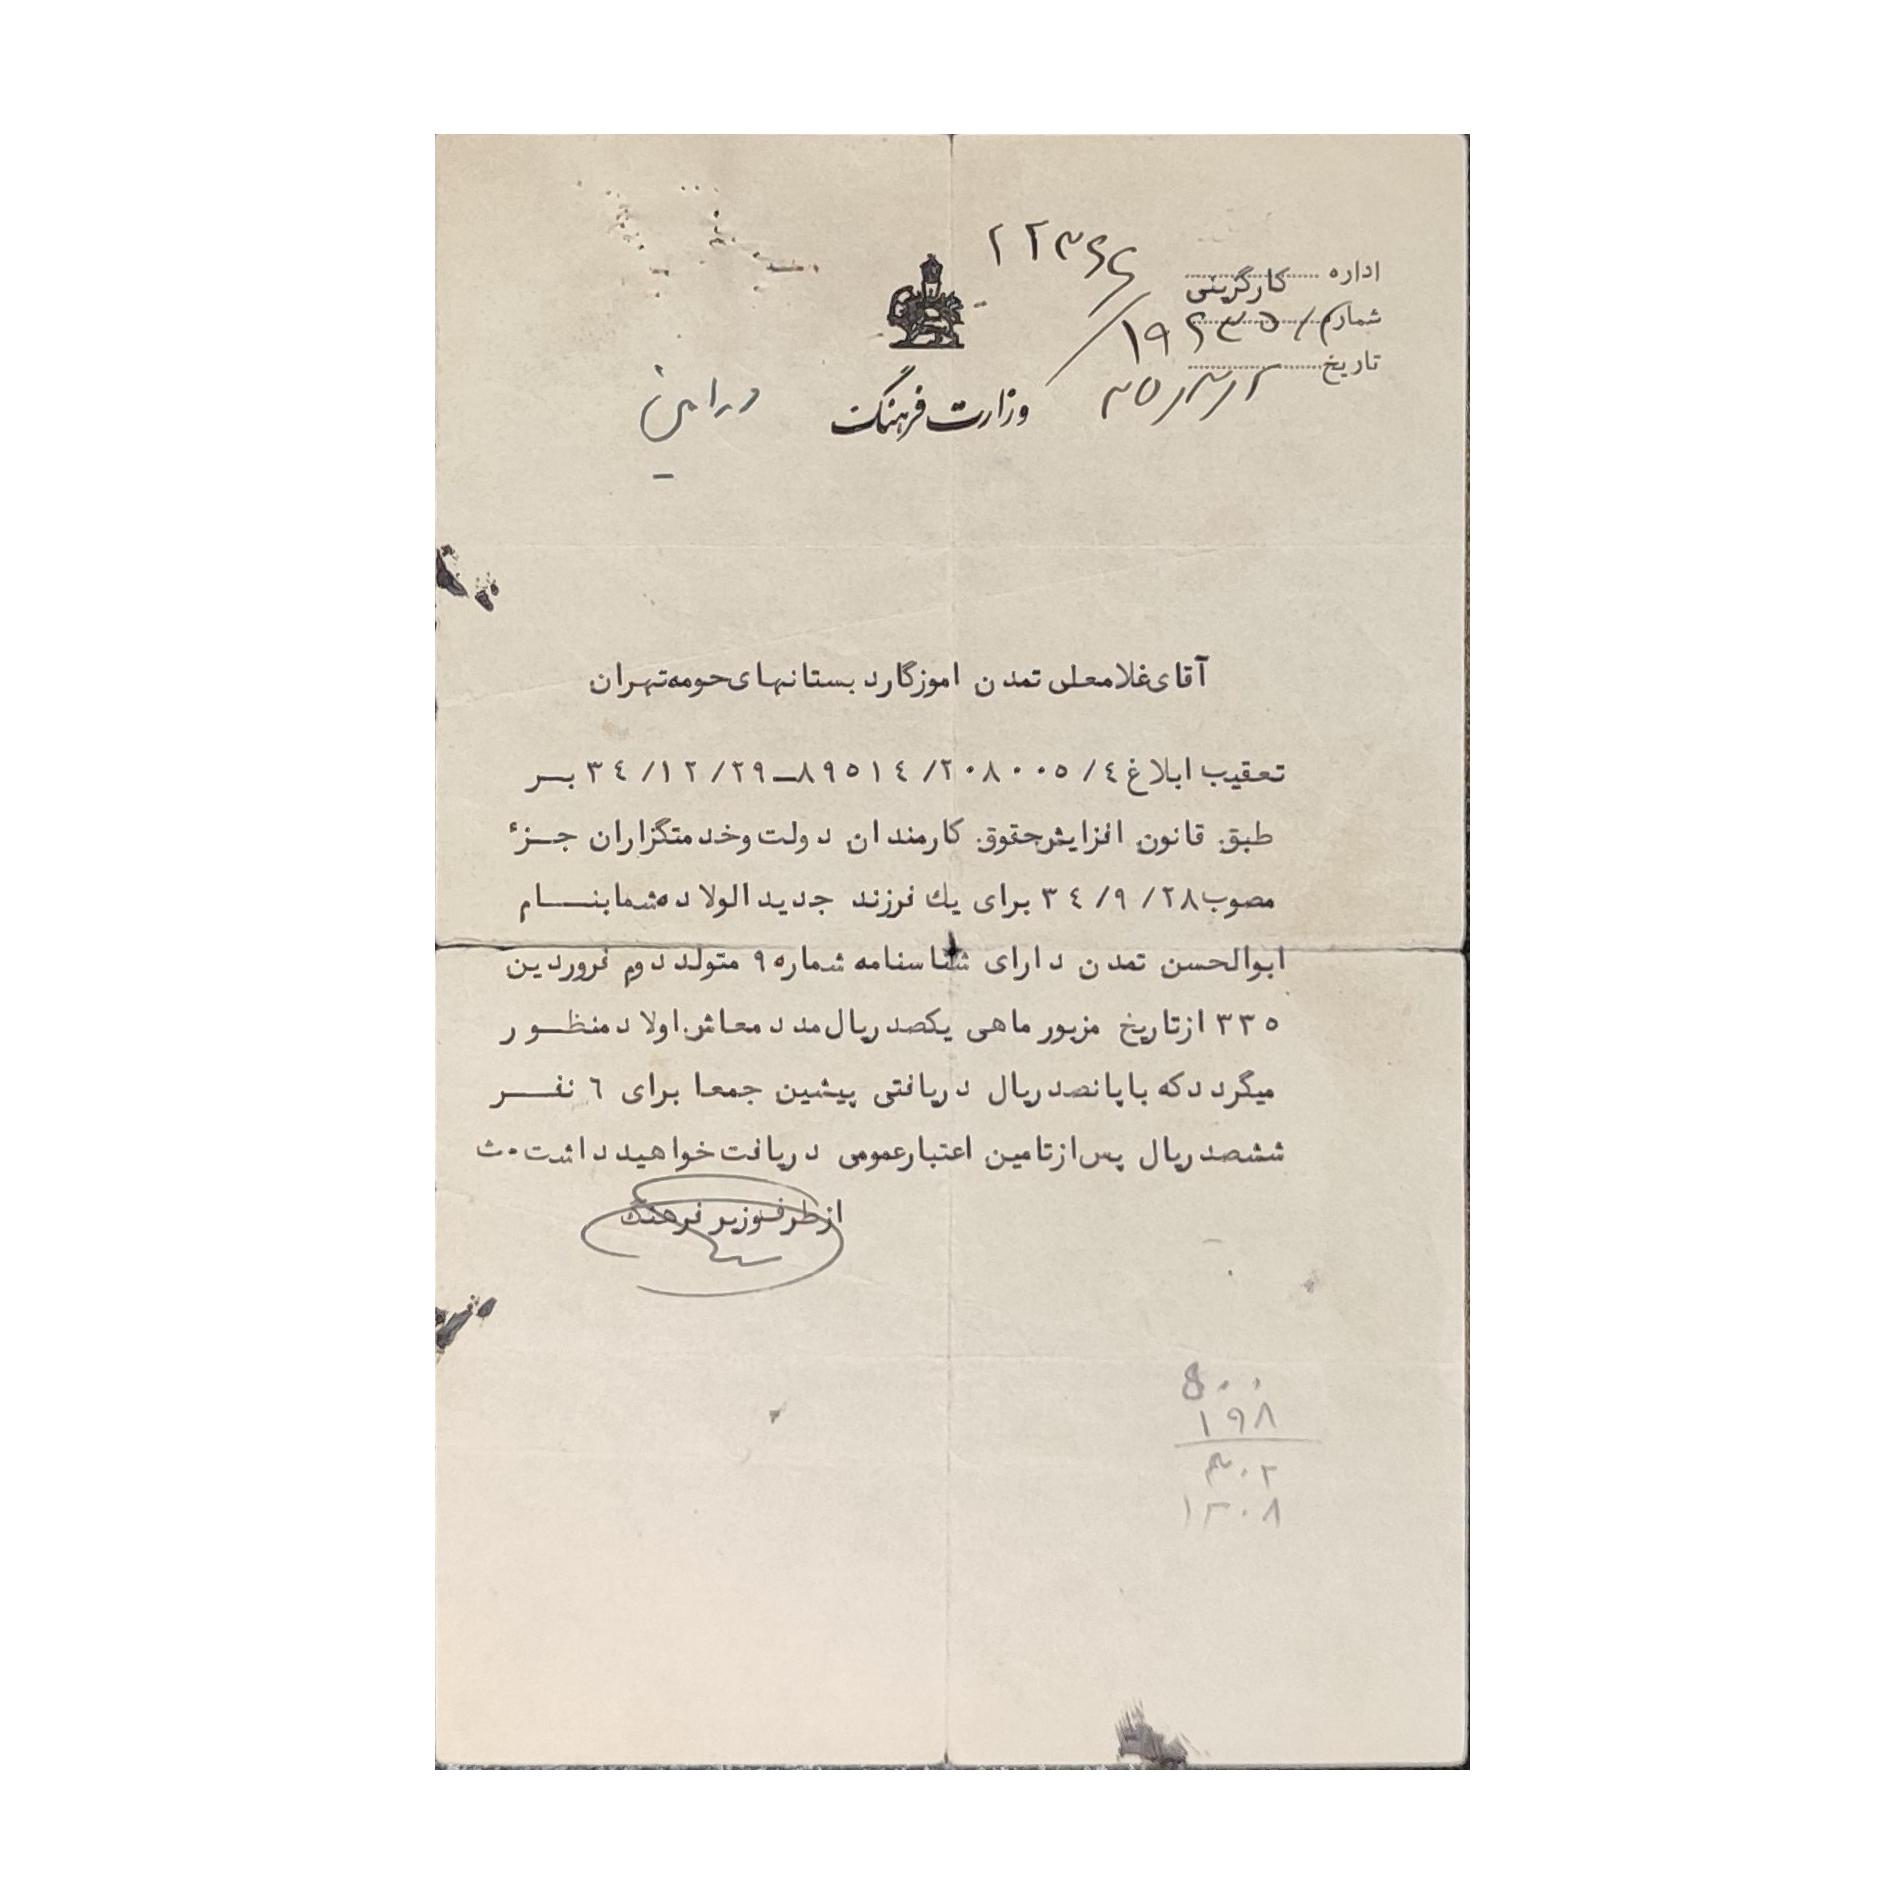 اداره کارگزینی
شماره
تاریخ
وزارت فرهنگ
ورامین
آقای غلامعلی تمدن اموزگار دبستانهای حومه تهران
تعقیب ابلاغ ٤/٢٠٨٠٠٥/٨٩٥١٤-٣٤/١٢/٢٩ بر
طبق قانون افزایش حقوق کارمندان دولت و خدمتگزاران جزء
مصوب ٣٤/٩/٢٨ برای یك فرزند جدیدالولاده شما بنام
ابوالحسن تمدن دارای شناسنامه شماره ٩ متولد دوم فروردین
٣٣٥ از تاریخ مزبور ماهی یکصد ریال مدد معاش اولاد منظور
میگردد که با پانصد ریال دریافتی پیشین جمعا برای ٦ نفر
ششصد ریال پس از تامین اعتبار عمومی دریافت خواهید داشت۰ث
از طرف وزیر فرهنگ
٥٠٠
١٩٨
٣٠٢
١٣٠٨